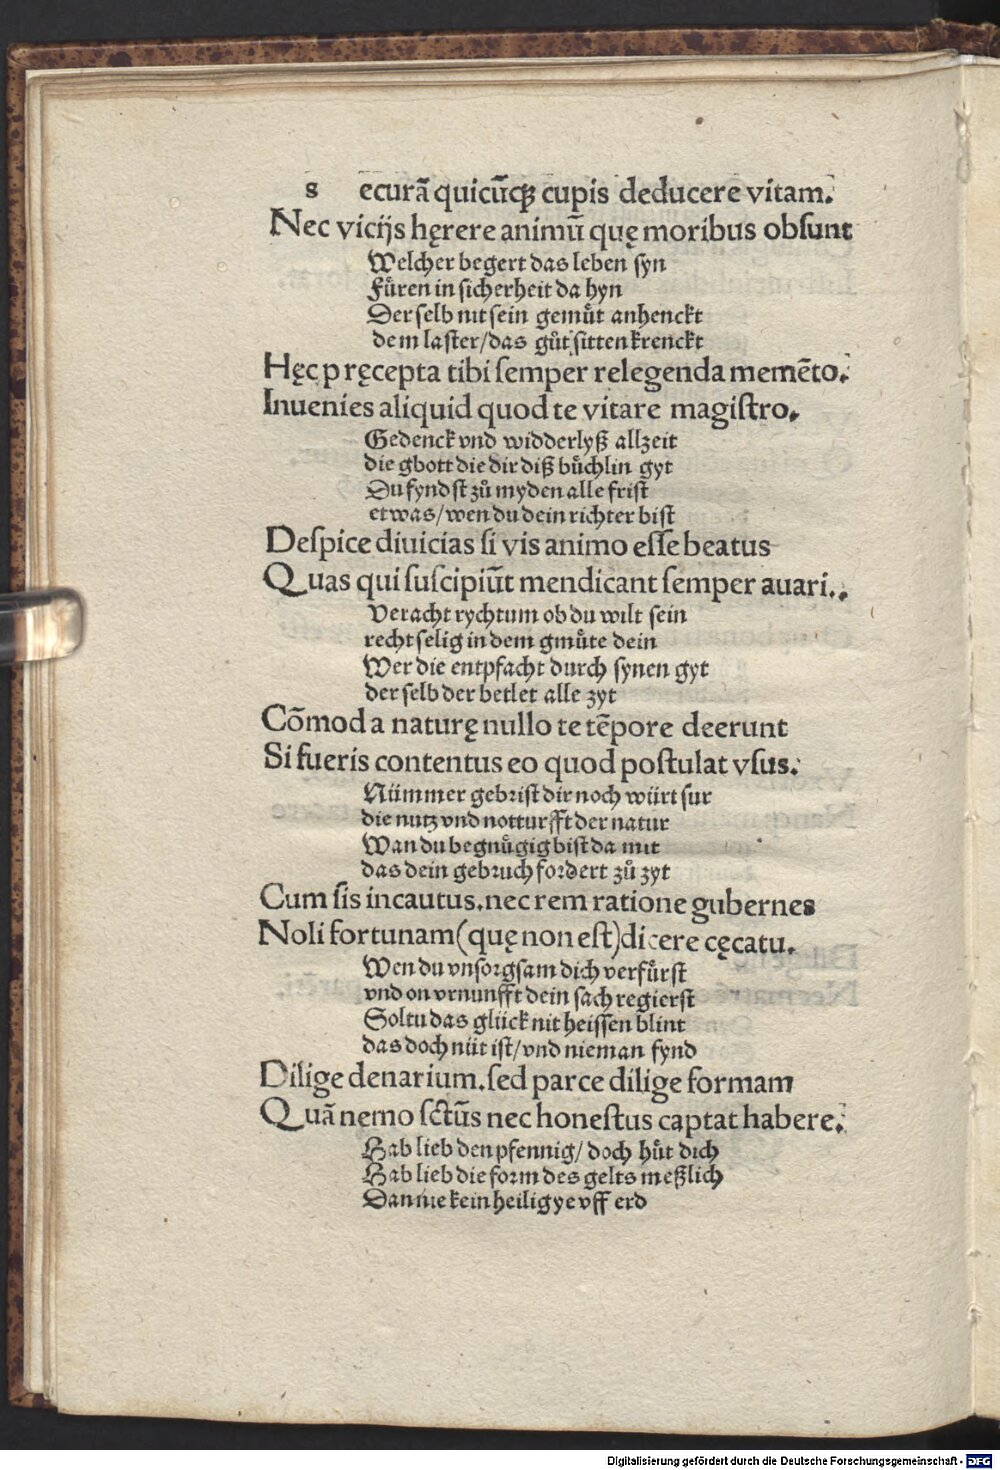 s ecurā quicūqꝫ cupis deducere vitam.
Nec vicijs hęrere animū quę moribus obsunt
Welcher begert das leben syn
Fuͤren in sicherheit da hyn
Der selb nit sein gemuͤt anhenckt
dem laster/das guͤt sitten krenckt
Hęc pręcepta tibi semper relegenda memēto.
Inuenies aliquid quod te vitare magistro.
Gedenck vnd widderlyß allzeit
die gbott die dir diß buͤchlin gyt
Du fyndst zuͦ myden alle frist
etwas/wen du dein richter bist
Despice diuicias si vis animo esse beatus
Quas qui suscipiūt mendicant semper auari..
Veracht rychtum ob du wilt sein
recht selig in dem gmuͤte dein
Wer die entpfacht durch synen gyt
der selb der betlet alle zyt
Cōmoda naturę nullo te tēpore deerunt
Si fueris contentus eo quod postulat vsus.
Nümmer gebrist dir noch würt sur
die nutz vnd notturfft der natur
Wan du begnuͤgig bist da mit
das dein gebruch fordert zuͦ zyt
Cum sis incautus.nec rem ratione gubernes
Noli fortunam(quę non est)dicere cęcatu.
Wen du vnsorgsam dich verfuͤrst
vnd on vrnunfft dein sach regierst
Soltu das glück nit heissen blint
das doch nüt ist/vnd nieman fynd
Dilige denarium.sed parce dilige formam
Quā nemo sctūs nec honestus captat habere.
Hab lieb den pfennig/doch huͤt dich
Hab lieb die form des gelts meßlich
Dan nie kein heilig ye vff erd
Digitalisierung gefördert durch die Deutsche Forschungsgemeinschaft - DFG